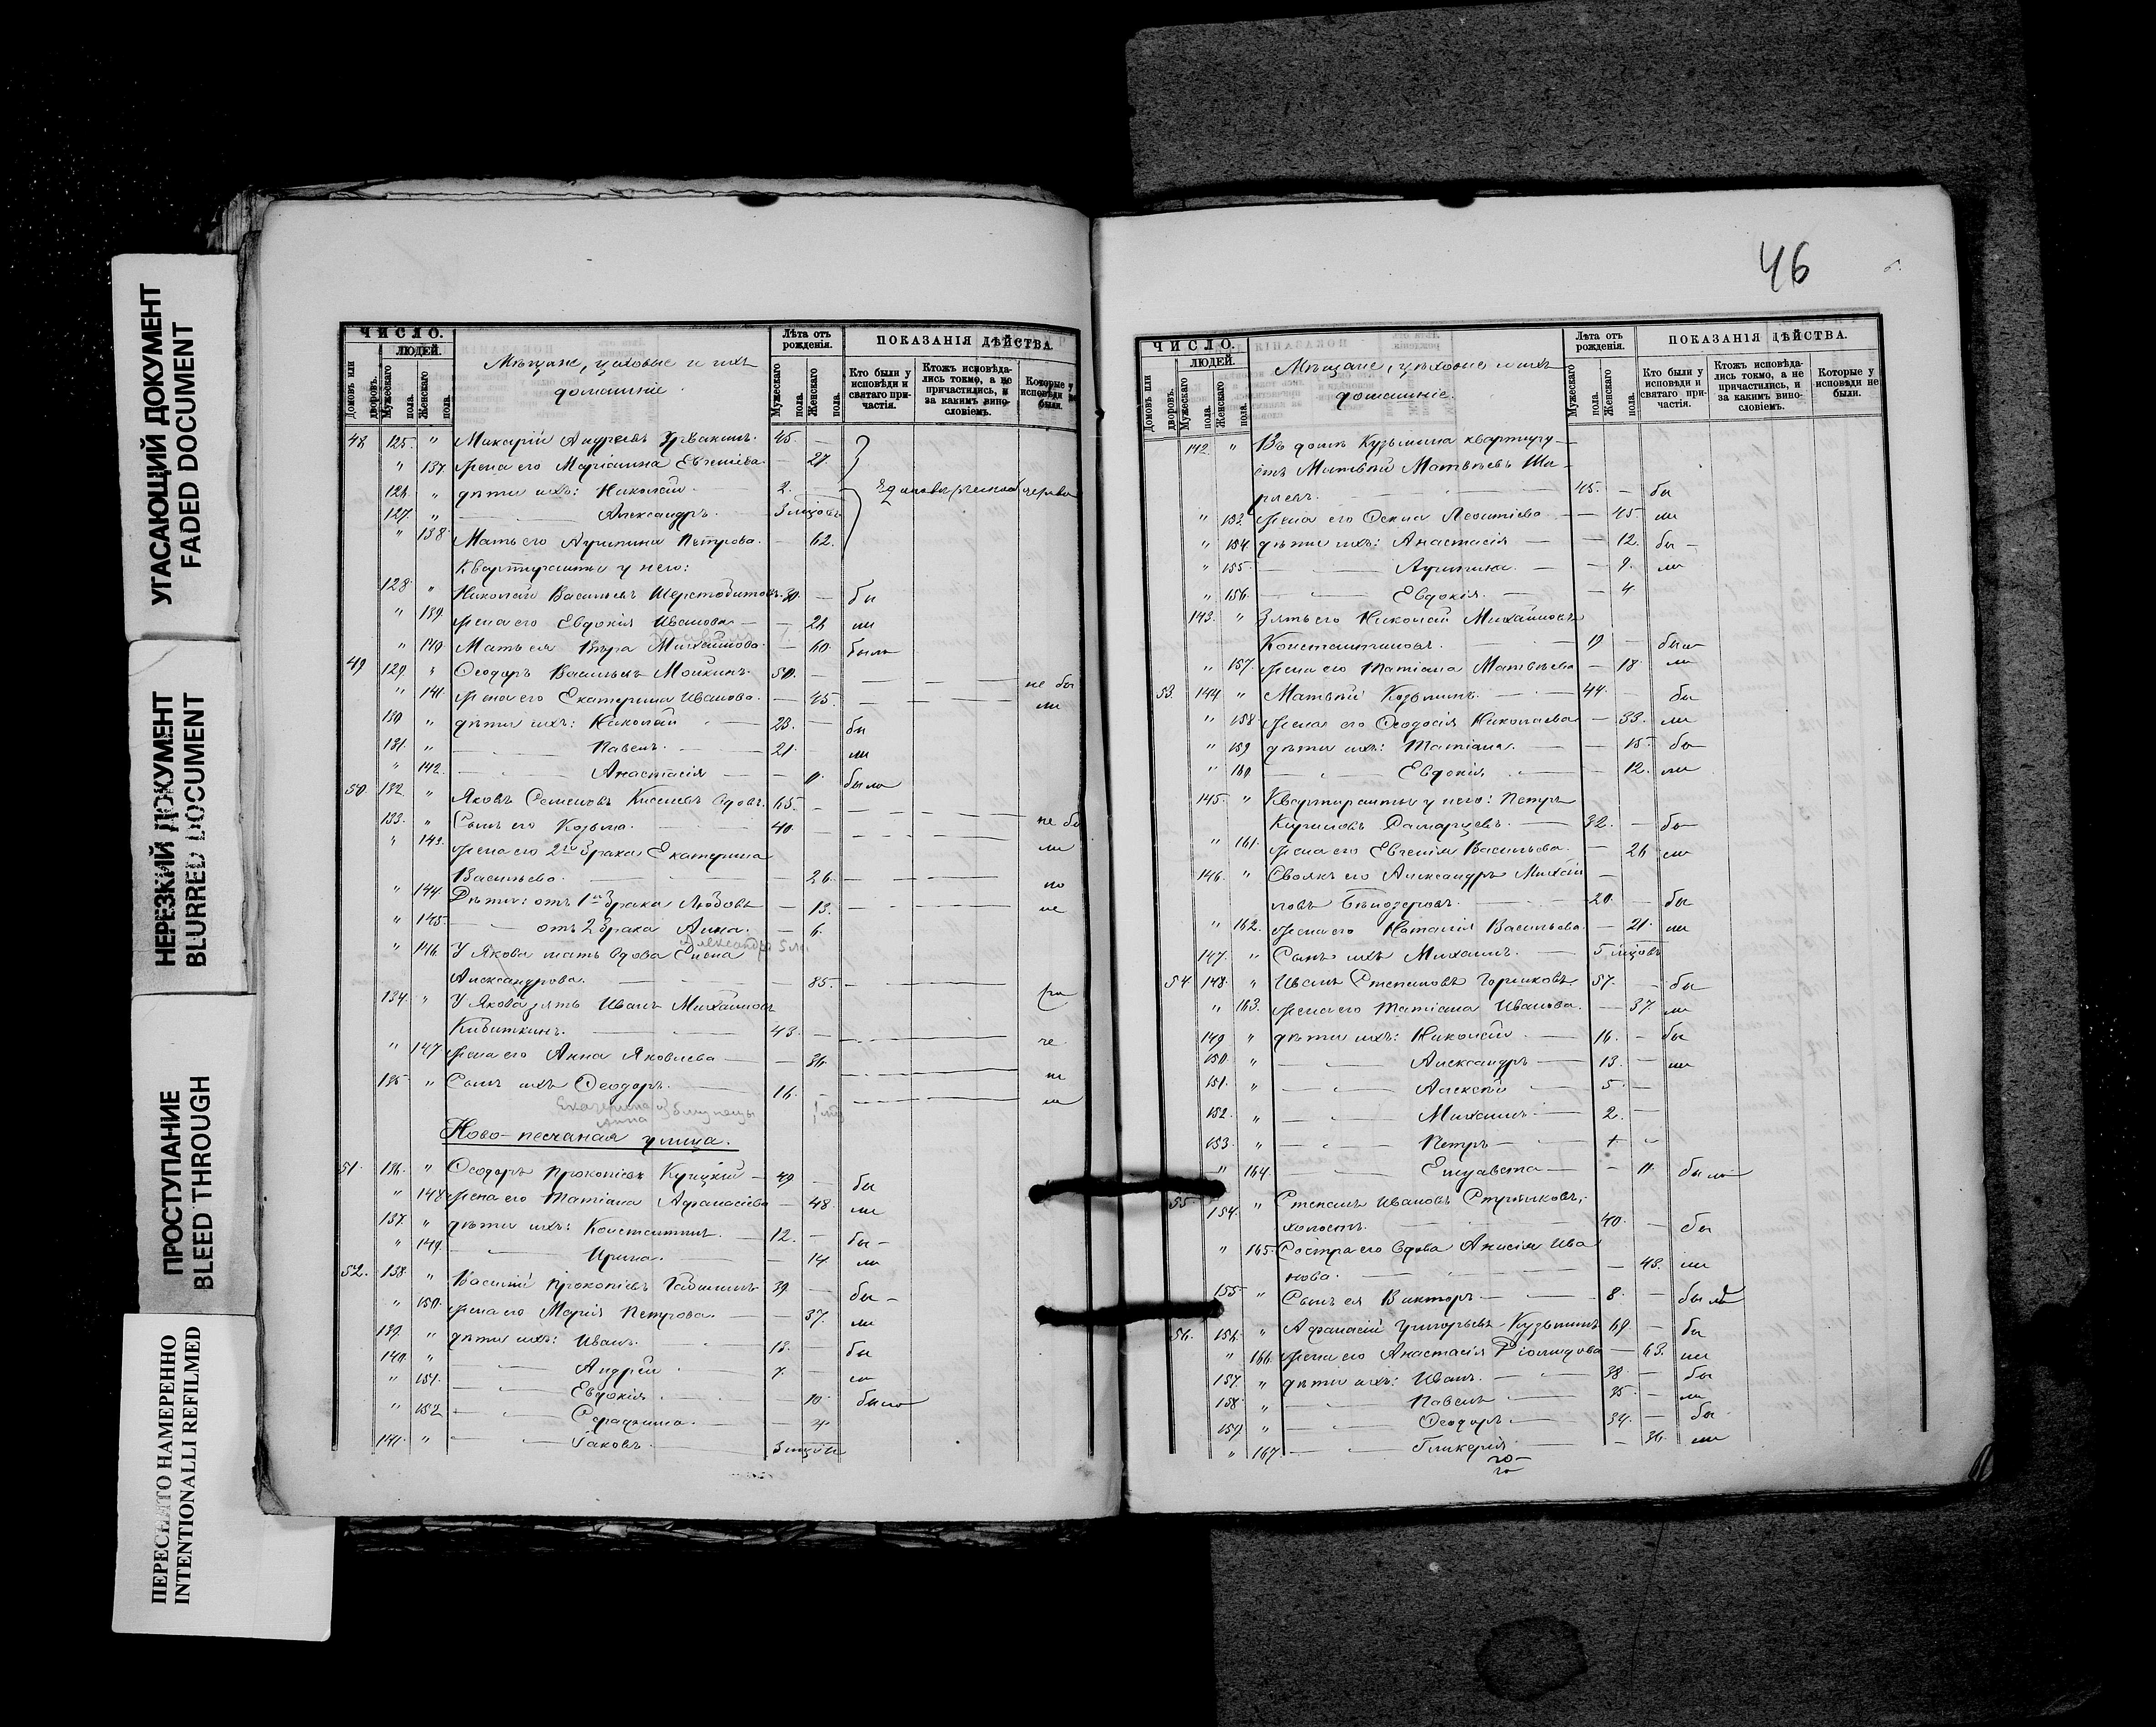 УГАСАЮЩИЙ ДОКУМЕНТ
FADED DOCUMENT
НЕРЕЗКИЙ ДОКУМЕНТ
BLURRED DOCUMENT
ПРОСТУПАНИЕ
BLEED THROUGH
ПЕРЕСНЯТО НАМЕРЕННО
INTENTIONALLI REFILMED
ЧИСЛО.
ЛЮДЕЙ.
Домовъ или дворовъ.
Мужескаго пола.
Женскаго пола.
Мѣщане, цеховые и ихъ
домашніе
Лѣта отъ рожденія.
Мужескаго пола.
Женскаго пола.
ПОКАЗАНІЯ ДѢЙСТВА.
Кто были у исповѣди и святаго причастія.
Ктожъ исповѣдались токмо, а не причастились, и за какимъ винословіемъ.
Которые у исповѣди не были.
48 125. " Макарій Андреевъ 45. —
" 137. Жена его Маріанна Евгеніева — 27.
126. " дѣти ихъ: Николай 2. —
127. " Александръ. 3 мцовъ
" 138 Мать его Агрипина Петрова. — 62.
Квартиранты у него:
128 " Николай Васильевъ Шерстобитовъ 30. — бы
" 139. Жена его Евдокія Иванова — — 26 ли
" 140 Мать ея Вѣра Михайлова — 60. была
49 129. " Ѳеодоръ Васильевъ Мошкинъ 50. — не бы
" 141. Жена его Екатерина Иванова. — 45. ли
130 " дѣти ихъ: Николай — 23. — бы
131. " Павелъ. — 21. ли
" 142. Анастасія — — 11. была
50 132. " Яковъ Семеновъ Киселевъ вдовъ. 65. —
133. " Сынъ его Козьма. 40. — не бы
" 143. Жена его 2го брака Екатерина ли
Васильева. — 26.
" 144 Дѣти: отъ 1го брака Любовь — 13.
" 145 отъ 2 брака Анна. — 6.
Александръ 5 м.
" 146. У Якова мать вдова Елена
Александрова. 85.
134. " У Якова зять Иванъ Михайловъ
Кибиткинъ. 43. —
" 147 Жена его Анна Яковлева — — 36.
135 " Сынъ ихъ Ѳеодоръ. 16. —
Екатерина
Анна
} близнецы
Ново-песчаная улица.
51. 136. " Ѳеодоръ Прокопіевъ Купцкій — 49 — бы
" 148 Жена его Татіана Афанасіева — 48. ли
137. " дѣти ихъ: Константинъ. 12. — бы —
" 149. Ирина. — 14 ли
52. 138. " Василій Прокопіевъ 39 — бы —
" 150. Жена его Марія Петрова. — — 37. ли
139. " дѣти ихъ: Иванъ. 13. бы
140. " Андрей 7. — ли
" 151. Евдокія. 10. была
" 152 Серафима. — 4.
141. " Іаковъ. 3 мцовъ
46
ЧИСЛО.
ЛЮДЕЙ.
Домовъ или дворовъ.
Мужескаго пола.
Женскаго пола.
Мѣщане, цѣховые и ихъ
домашніе.
Лѣта отъ рожденія.
Мужескаго пола.
Женскаго пола.
ПОКАЗАНІЯ ДѢЙСТВА.
Кто были у исповѣди и святаго причастія.
Ктожъ исповѣдались токмо, а не причастились, и за какимъ винословіемъ.
Которые у исповѣди не были.
142. " Въ домѣ Кузьмина квартиру—
етъ Матвѣй Матвѣевъ Ши-
45. — бы
" 153. Жена его Леонтіева — — 45. ли
" 154. дѣти ихъ: Анастасія — — 12. бы —
" 155. Агрипина. — — 9. ли
" 156. Евдокія. — — 4.
143. " Зять его Николай Михайловъ
Константиновъ. 19 — были
" 157. Жена его Татіана Матвѣева — 18. ли
53. 144 " Матвѣй Козьминъ. 44. — бы
" 158. Жена его Ѳеодосія Николаева — 33. ли
" 159 дѣти ихъ: Татіана. — — 15. бы
" 160 Евдокія. — 12. ли
145. " Квартиранты у него: Петръ
Кириловъ 32. — бы
" 161. Жена его Евгенія Васильева. — 26 ли
146. " Своякъ его Александръ Михай
ловъ Бѣлозеровъ. 20. — бы
" 162. Жена его Наталія Васильева. — 21. ли
147. " Сынъ ихъ Михаилъ. — 5 мцовъ
54 148. " Иванъ Степановъ Горшковъ 57. — бы
" 163. Жена его Татіана Иванова. — 37. ли
149 " дѣти ихъ: Николай — 16. — бы
150. " Александръ — 13. — ли
151. " Алексѣй — 5. —
152. " Михаилъ — 2. —
153. " Петръ — † —
" 164. Елисавета — — 11. была
55. 154. " Степанъ Ивановъ Стуколковъ,
холостъ. 40. — бы
" 165. Сестра его вдова Анисія Ива
нова. — 43. ли
155 " Сынъ ея Викторъ — 8. — былъ
56. 156. " Афанасій Григорьевъ Кузьминъ 69. — бы
" 166. Жена его Анастасія Діомидова — 63. ли
157. " дѣти ихъ: Иванъ. — 38. — бы
158. " Павелъ 35. — ли
159. " Ѳеодоръ — 34. — бы
" 167. Гликерія — — 36. ли